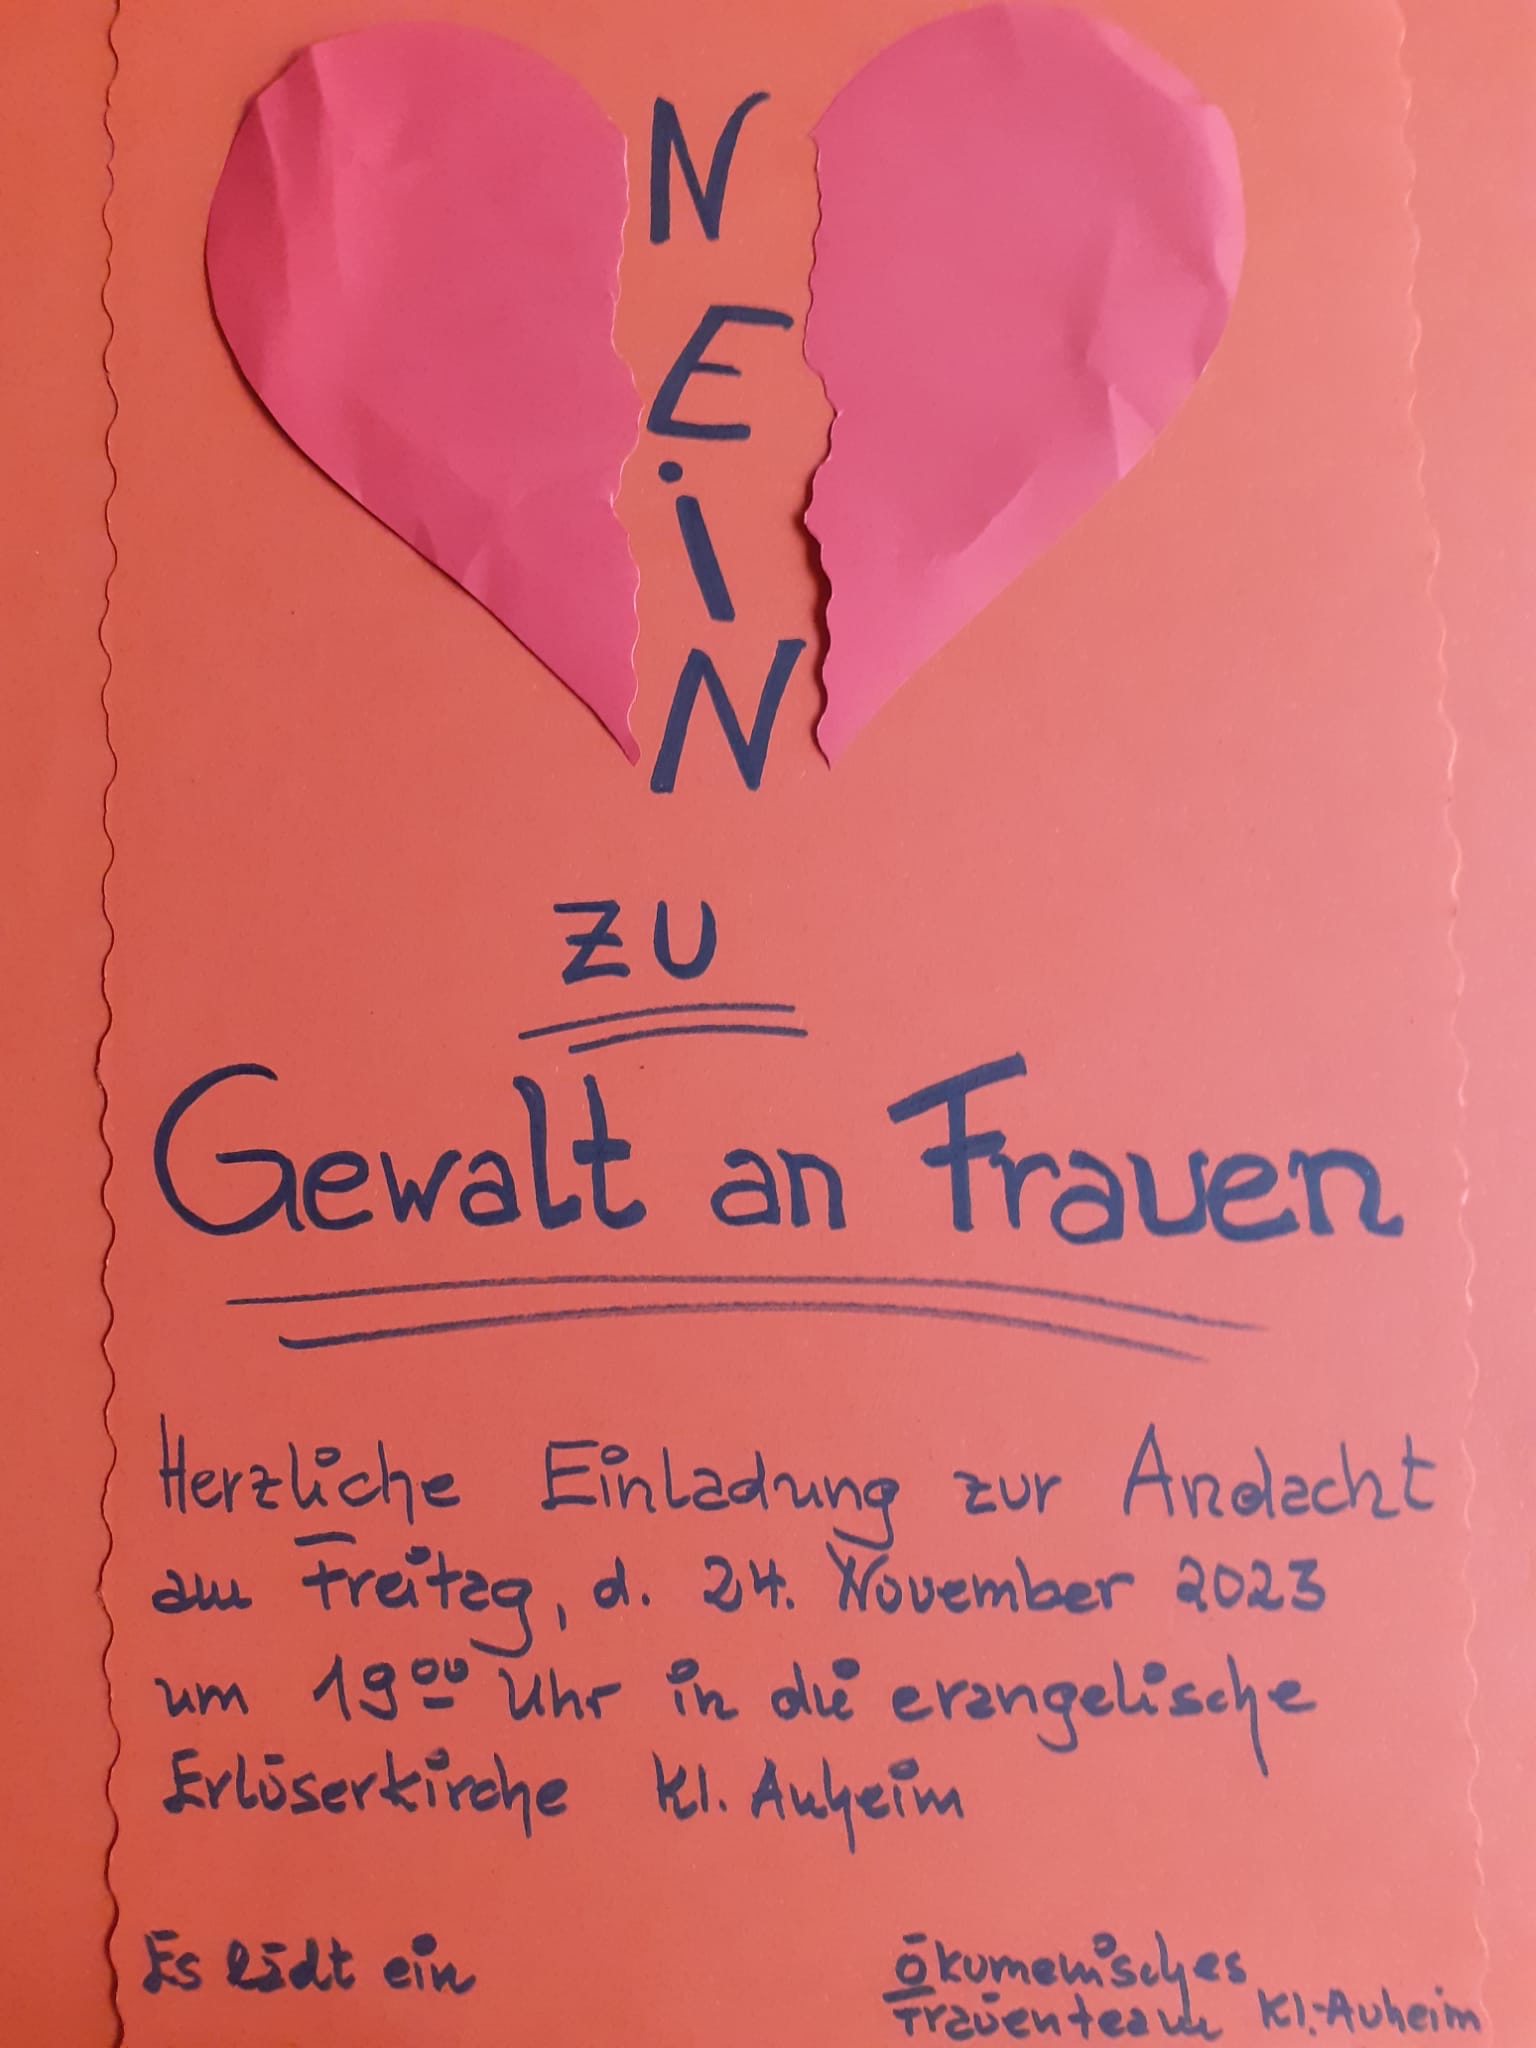 NEiN
ZU
Gewalt an Frauen
Herzliche Einladung zur Andacht
am Freitag, d. 24. November 2023
um 19⁰⁰ Uhr in die evangelische
Erlöserkirche Kl. Auheim
Es lädt ein
Ökumenisches
Frauenteam Kl.-Auheim